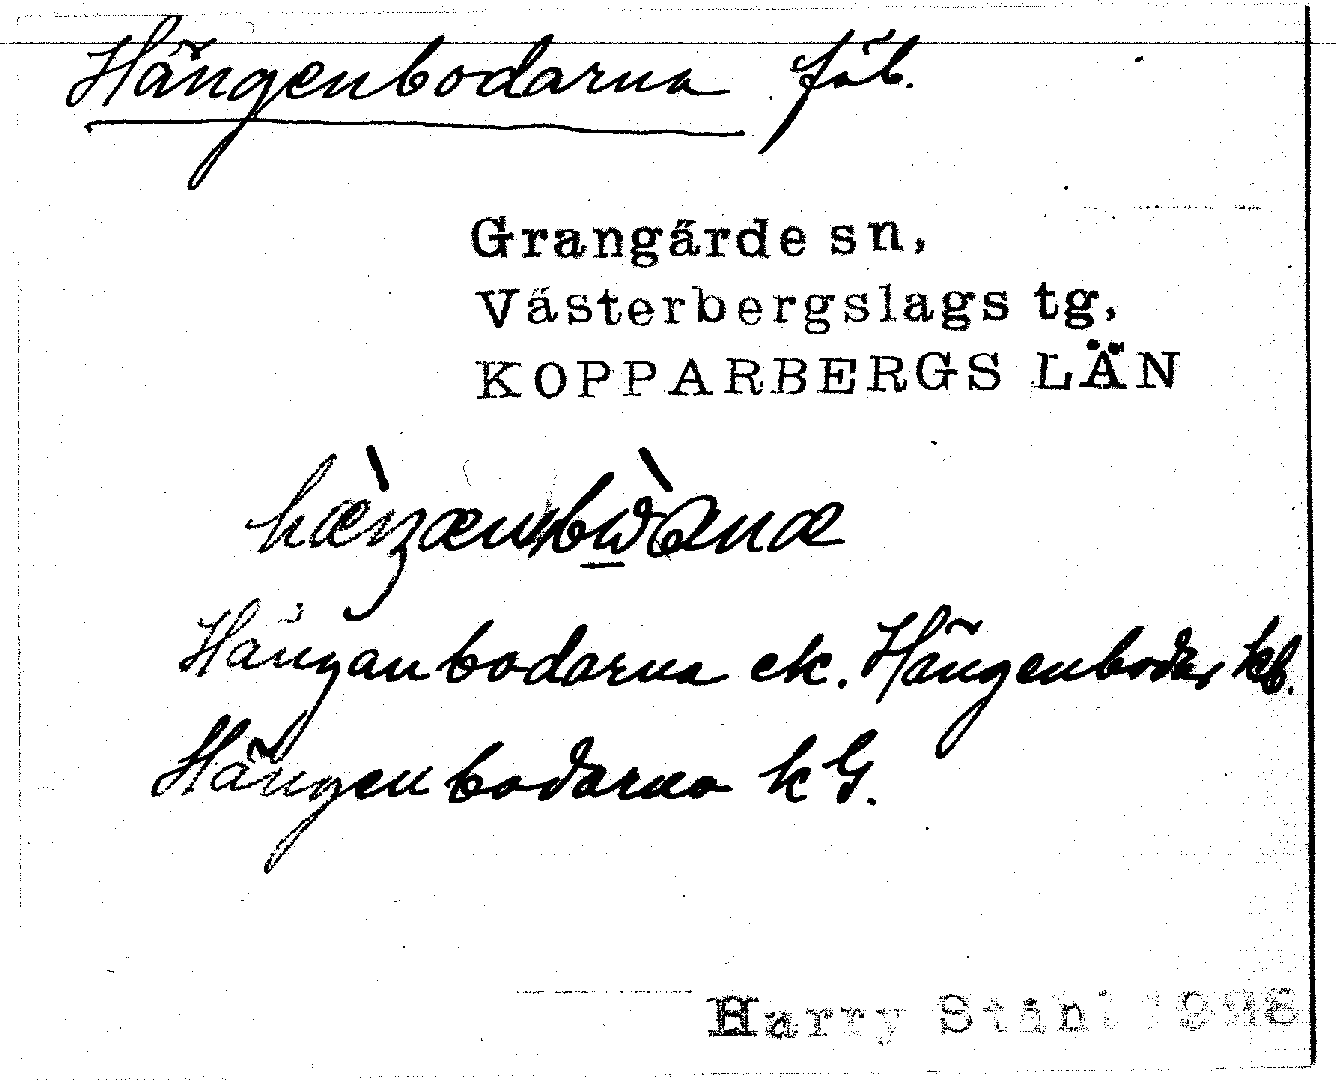 Hängenbodarna fäb.
Grangärde sn,
Västerbergslags tg,
KOPPARBERGS LÄN
Hänganbodarna ek. Hängenbodar kb.
Hängenbodarna kG.
Harry Ståhl